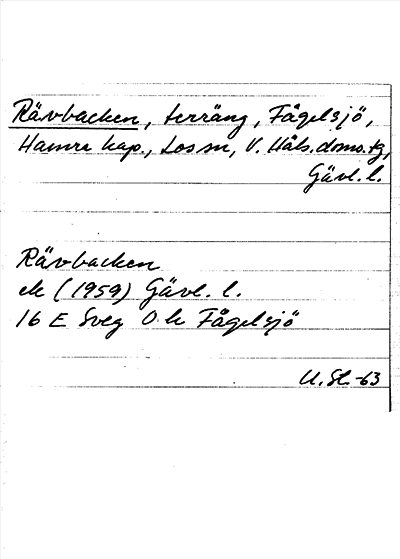 Rävbacken, terräng, Fågelsjö,
Hamra kap., Los sn, V. Häls. doms.tg,
Gävl. l.
Rävbacken
ek (1959) Gävl. l.
16 E Sveg O k Fågelsjö
U.St.-63